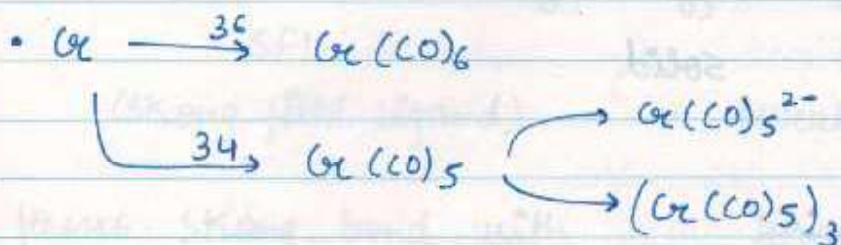 • Cr —36→ Cr(CO)6
—34→ Cr(CO)5 → Cr(CO)5²⁻
→ (Cr(CO)5)3